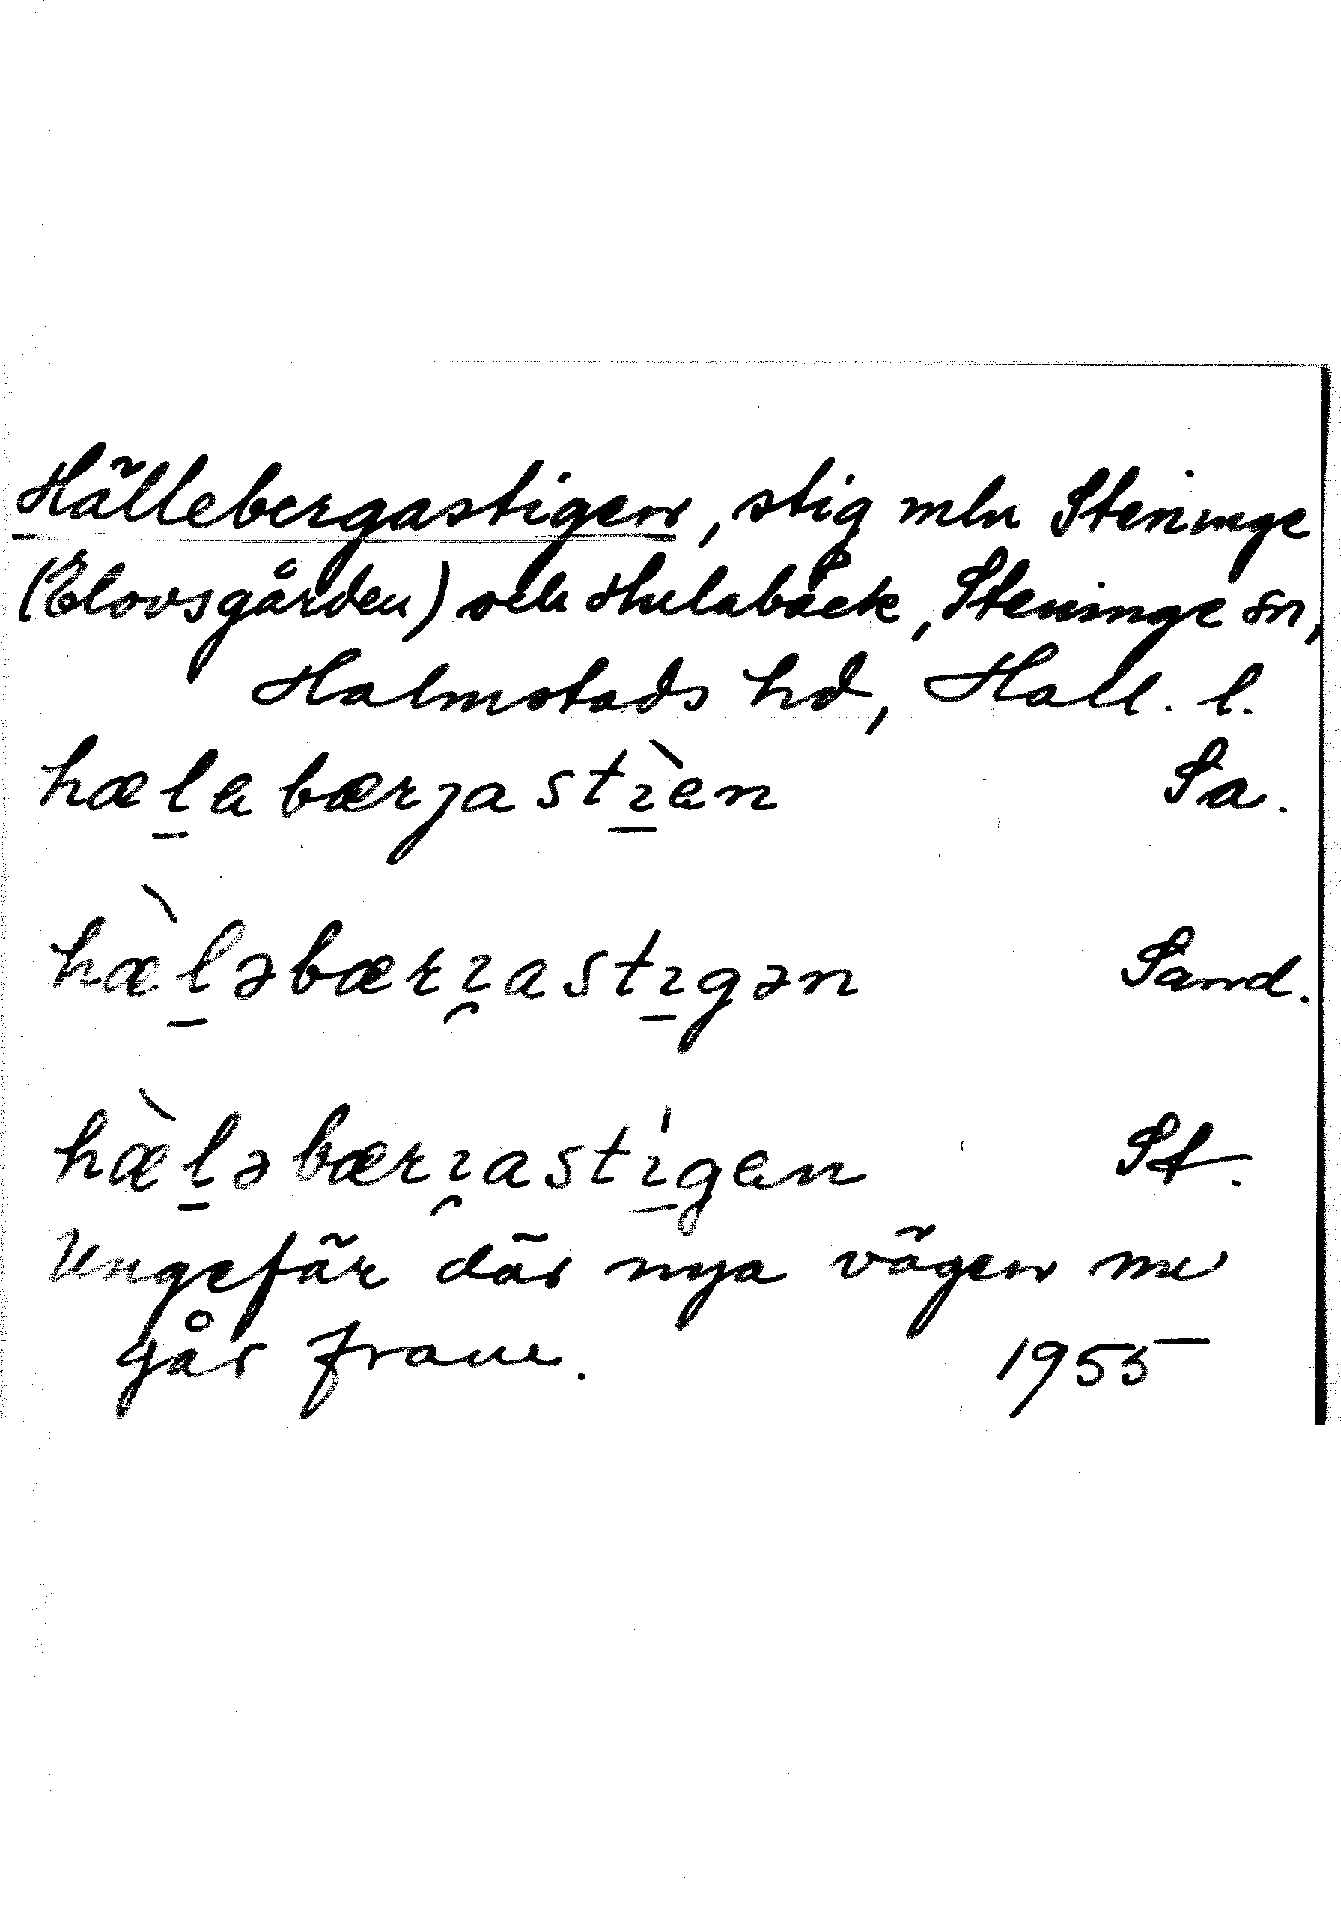 Hällebergastigen, stig mln Steninge
(Elovsgården) och Hulabäck, Steninge sn,
Halmstads hd, Hall. l.
hæl̲ebærjastı̲̀en Sa.
hæ̀l̲əbærı̯astı̲gən Sand.
hæ̀l̲əbærı̯astı̲́gen St.
Ungefär där nya vägen nu
går fram. 1955